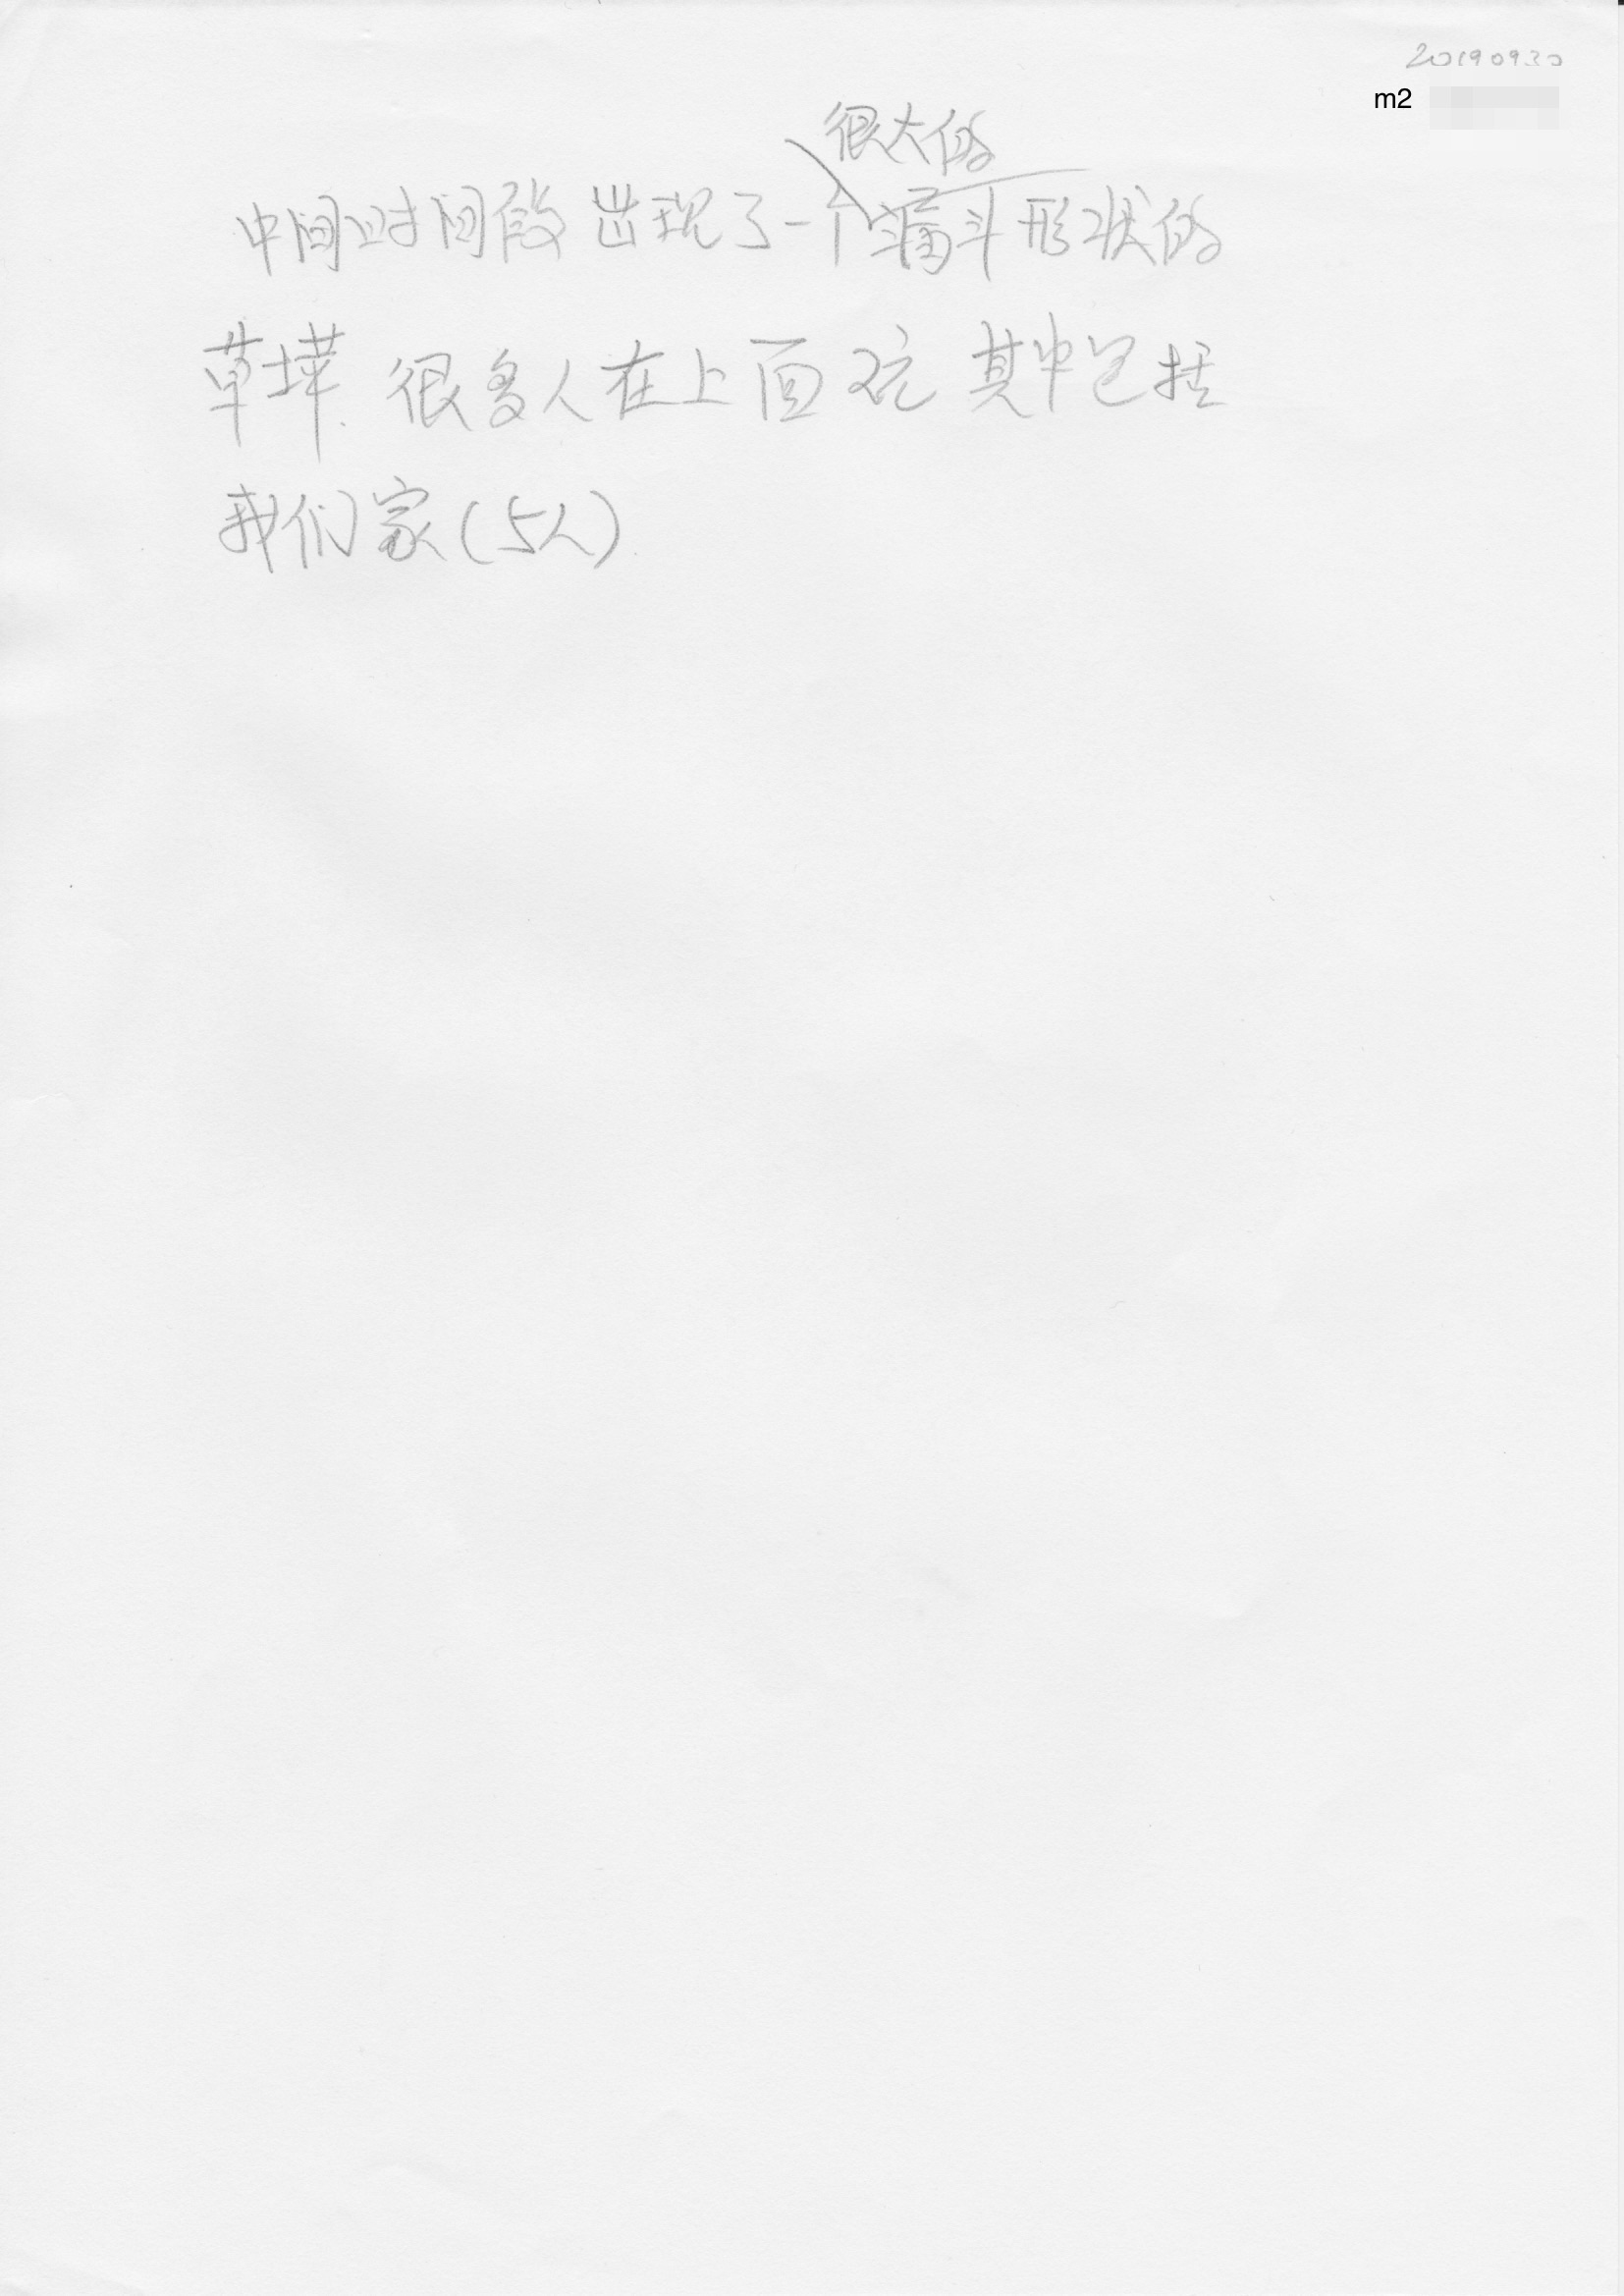 20190930
m2
很大的
中间时间段 出现了一个漏斗形状的
草坪. 很多人在上面玩 其中包括
我们家(5人).